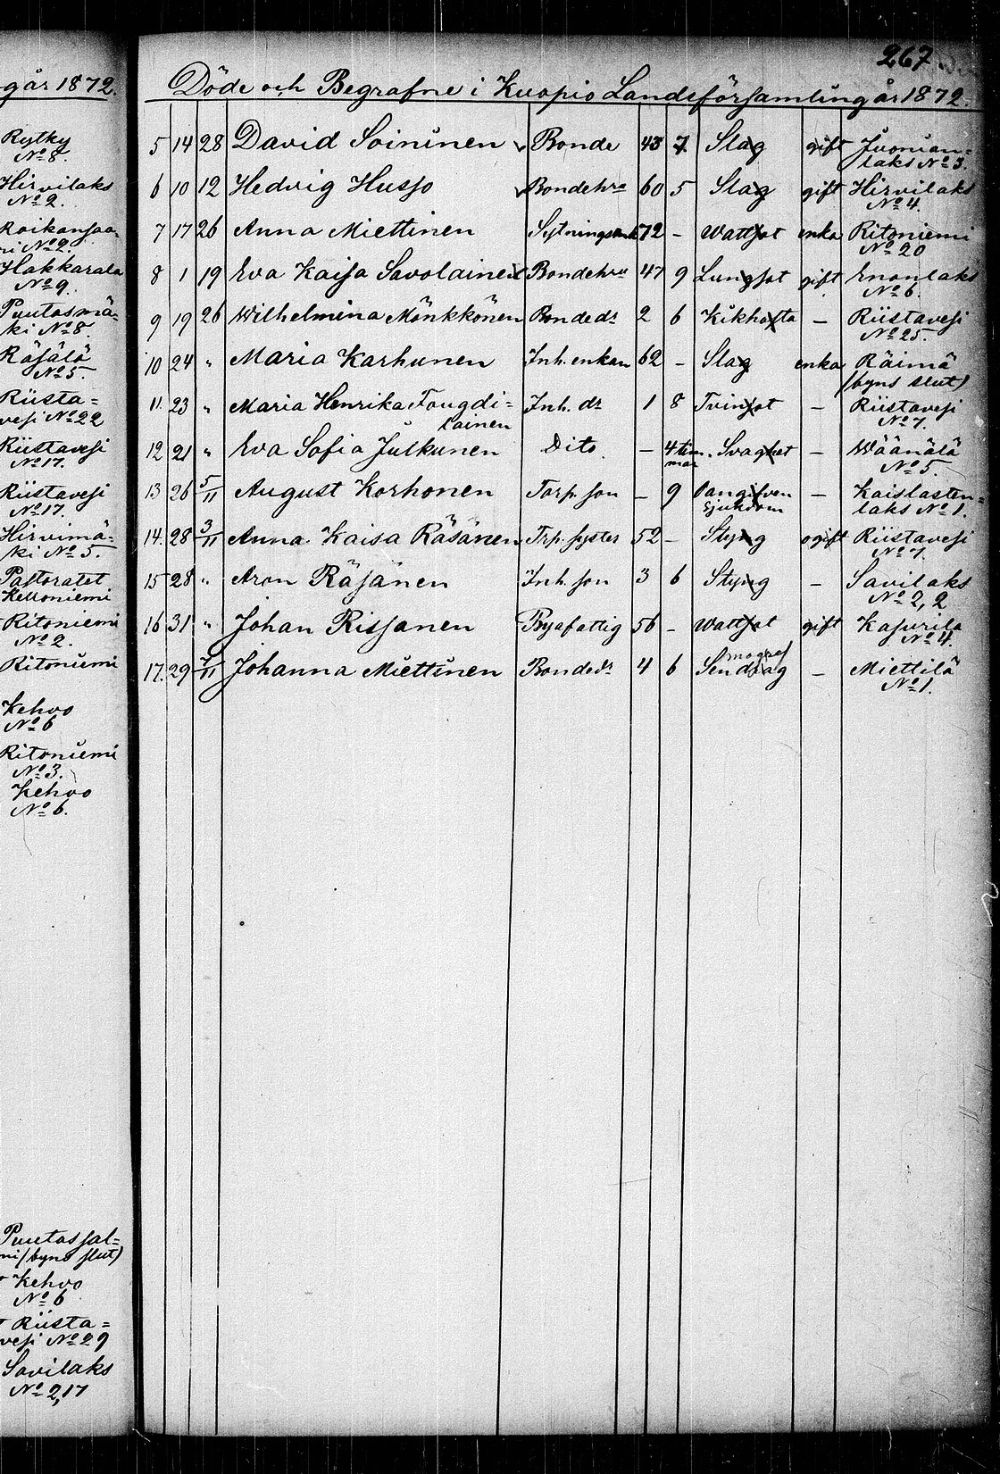 går 1872.
Rytky
No 8.
Hirvilaks
No 2.
Roikansaa-
ri No 2.
Hakkarala
No 9.
Puutosmä-
ki No 8
Räsälä
No 5.
Riista=
vesi No 22
Riistavesi
No 17.
Riistavesi
No 17.
Hirvimä=
ki No 5.
Pastoratet
Kelloniemi
Ritoniemi
No 2.
Ritoniemi
Kehvo
No 6
Ritoniemi
No 3.
Kehvo
No 6.
Puutossal=
mi (byns slut)
Kehvo
No 6
Riista=
vesi No 29
Savilaks
No 2,17
267
Döde och Begrafne i Kuopio Landsförsamling år 1872.
5 14 28 David Soininen Bonde 43 7 Slag gift Juonian-
laks No 3.
6 10 12 Hedvig Husso Bondehra 60 5 Slag gift Hirvilaks
No 4.
7 17 26 Anna Miettinen 72 - Wattsot enka Ritoniemi
No 20
8 1 19 Eva Kaisa Savolainen Bondehru 47 9 Lungsot gift Enonlaks
No 6.
9 19 26 Wilhelmina Mönkkönen Bondedr 2 6 Kikhosta - Riistavesi
No 25.
10 24 " Maria Karhunen Inh. enkan 62 - Slag enka Räimä
(byns slut)
11. 23 " Maria Henrika Fougdi= Inh. dr 1 8 Tvinsot - Riistavesi
lainen No 7.
12 21 " Eva Sofia Julkunen Dito. - 4 tim- Svaghet - Wäänälä
mar No 5.
13 26 5/11 August Korhonen Torp. son - 9 Oangifven - Kaislasten-
sjukdom laks No 1.
14. 28 3/11 Anna Kaisa Räsänen Trp. syster 52 - Styng ogift Riistavesi
No 7.
15 28 " Aron Räsänen Inh. son 3 6 Styng - Savilaks
No 2, 2
16 31 " Johan Rissanen Byafattig 56 - Wattsot gift Kasurila
No 4.
17. 29 7/11 Johanna Miettinen Bondedr 4 6 - Miettilä
No 1.